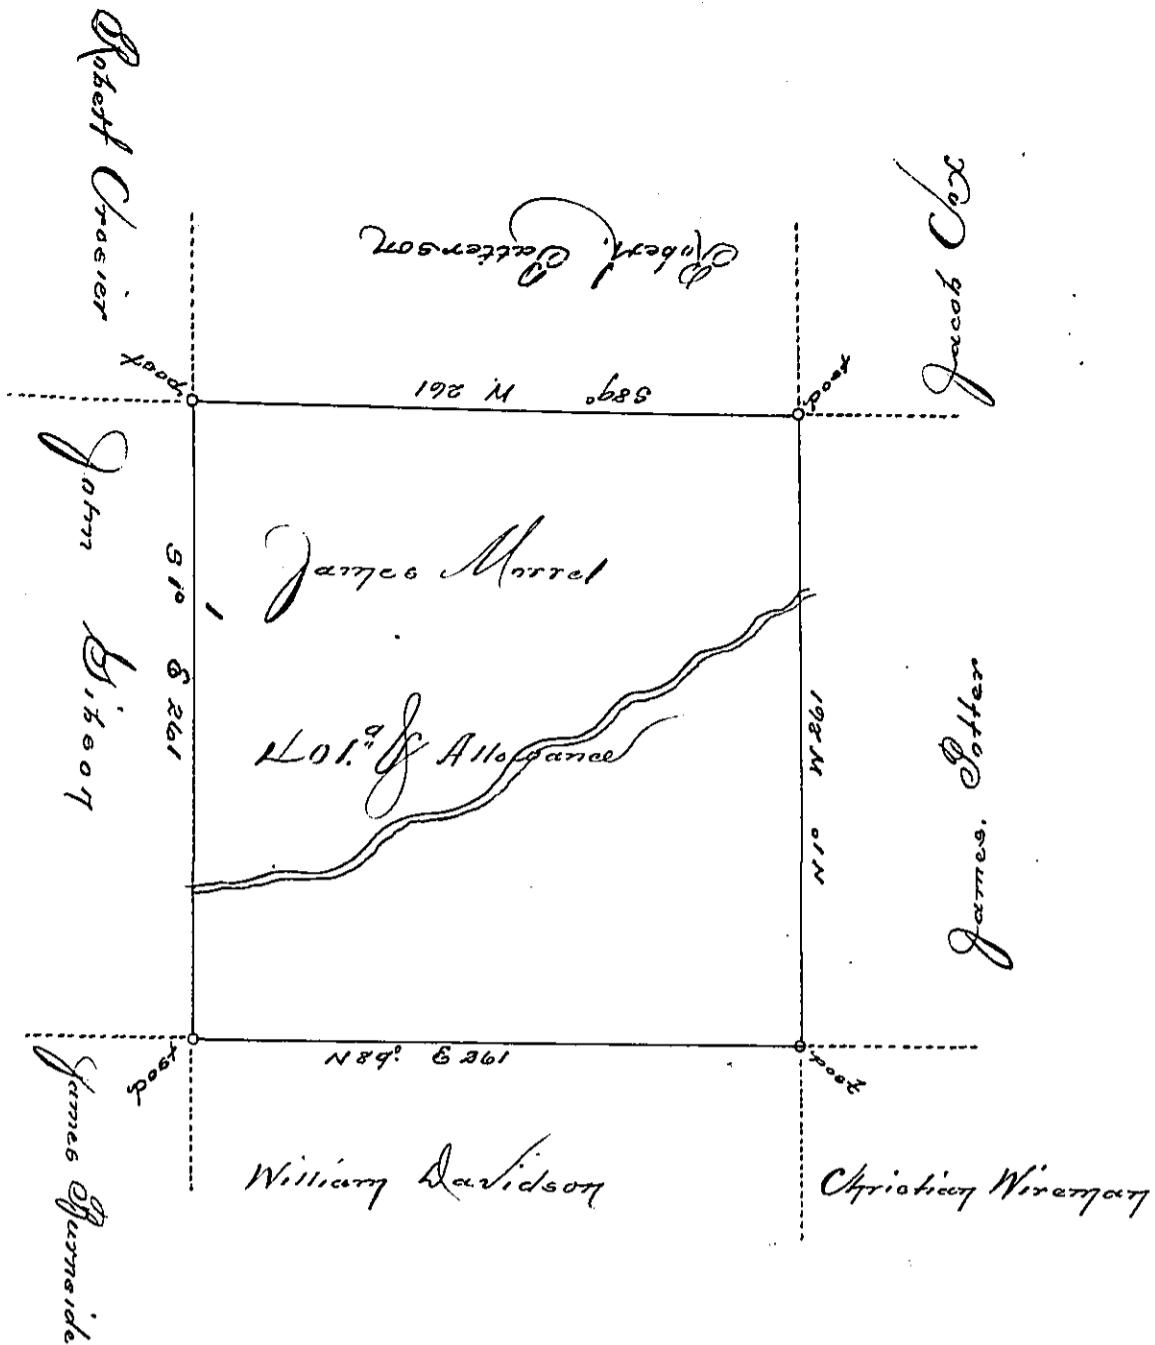 Robert Crosier
Robert. Patterson
Jacob Cox
post
S89° W. 261
post
John Gibson
S 1° E 261
James Morrel
401.a & Allowance
N1° W 261
James. Potter
post
N 89°. E 261
post
James Burnside
William Davidson
Christian Wireman